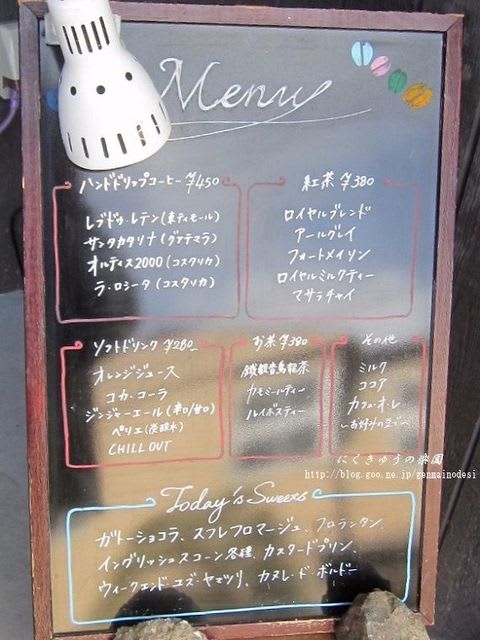 Menu
ハンドドリップコーヒー ¥450
レブドゥ・レテン(東ティモール)
サンタカタリナ(グァテマラ)
オルティス2000(コスタリカ)
ラ・ロシータ(コスタリカ)
紅茶 ¥380
ロイヤルブレンド
アールグレイ
フォートメイソン
ロイヤルミルクティー
マサラチャイ
ソフトドリンク ¥280
オレンジジュース
コカ・コーラ
ジンジャーエール(辛口/甘口)
ペリエ(炭酸水)
CHILL OUT
お茶 ¥380
鉄観音烏龍茶
カモミールティー
ルイボスティー
その他
ミルク
ココア
カフェ・オ・レ
〜お好みの豆で〜
にくきゅうの楽園
http://blog.goo.ne.jp/genmainodesi
Today's Sweets
ガトーショコラ、スフレフロマージュ、フロランタン、
イングリッシュスコーン各種、カスタードプリン、
ウィークエンド・ユズ・ヤマツリ、カヌレ・ド・ボルドー